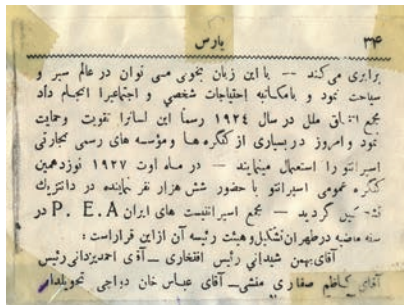 پارس ۳۴
برابری می‌کند -- با این زبان بخوبی می توان در عالم سیر و
سیاحت نمود و بامکاتبه احتیاجات شخصی و اجتماعیرا انجام داد
مجمع اتفاق ملل در سال ۱۹۲٤ رسماً این لسانرا تقویت وحمایت
نمود و امروز در بسیاری از کنگره ها و مؤسسه های رسمی تجارتی
اسپرانتو را استعمال مینمایند — در ماه اوت ۱۹۲۷ نوزدهمین
کنگره عمومی اسپرانتو با حضور شش هزار نفر نماینده در دانتزیك
تشکیل گردید — مجمع اسپرانتیست های ایران P. E. A در
سنه ماضیه درطهران تشکیل وهیئت رئیسه آن ازاین قراراست :
آقای بهمن شیدانی رئیس افتخاری ــ آقای احمدیزدانی رئیس
آقای کاظم صفاری منشی ــ آقای عباس خان دواچی تحویلدار